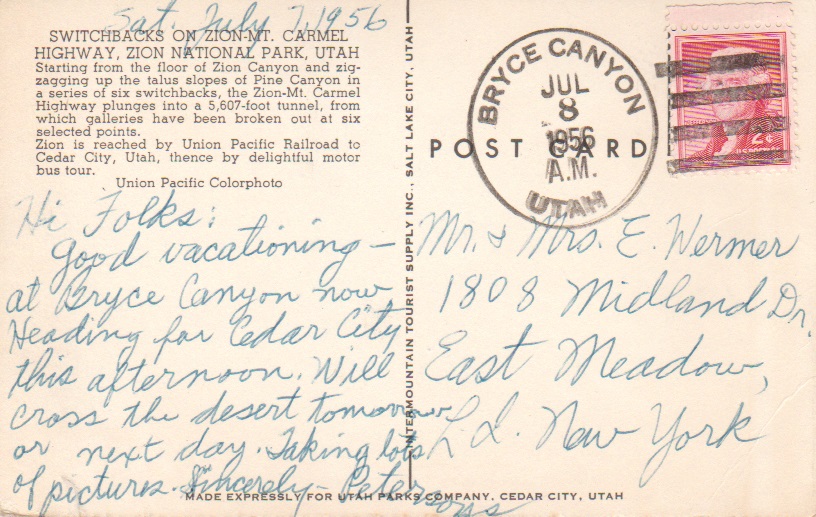 Sat. July 7, 1956
SWITCHBACKS ON ZION-MT. CARMEL
HIGHWAY, ZION NATIONAL PARK, UTAH
Starting from the floor of Zion Canyon and zig-
zagging up the talus slopes of Pine Canyon in
a series of six switchbacks, the Zion-Mt. Carmel
Highway plunges into a 5,607-foot tunnel, from
which galleries have been broken out at six
selected points.
Zion is reached by Union Pacific Railroad to
Cedar City, Utah, thence by delightful motor
bus tour.
Union Pacific Colorphoto
Hi Folks:
Good vacationing —
at Bryce Canyon now
Heading for Cedar City
this afternoon. Will
cross the desert tomorrow
or next day. Taking lots
of pictures. Sincerely - Petersons
MADE EXPRESSLY FOR UTAH PARKS COMPANY, CEDAR CITY, UTAH
INTERMOUNTAIN TOURIST SUPPLY INC., SALT LAKE CITY, UTAH
POST CARD
BRYCE CANYON
JUL
8
1956
A.M.
UTAH
2¢
Mr. & Mrs. E. Wermer
1808 Midland Dr.
East Meadow,
L I. New York